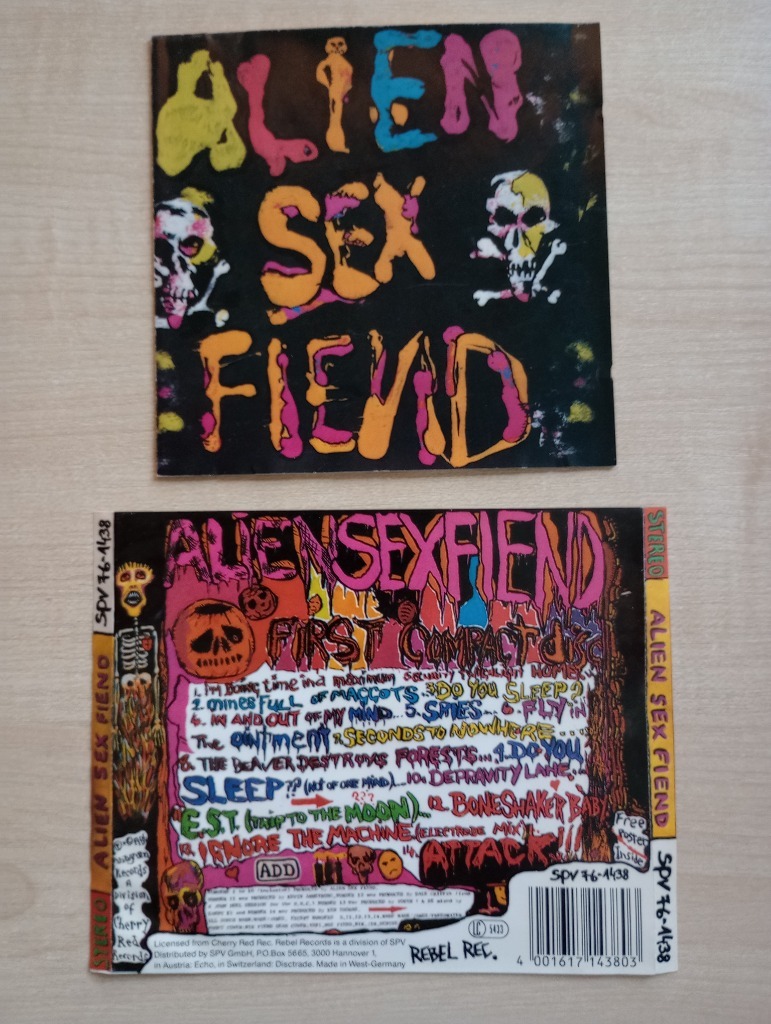 ALIEN
SEX
FIEND
SPV 76-1438
ALIEN SEX FIEND
STEREO
ALIEN SEX FIEND
FIRST COMPACT disc
1. I'm Doing time in a maximum security twilight HOME..
2. MINE'S FULL OF MAGGOTS. 3. DO YOU SLEEP?
4. IN AND OUT OF MY MIND... 5. SPIES... 6. FLY iN
The OINTMENT 7. SECONDS TO NOWHERE...
8. THE BEAVER DESTROYS FORESTS... 9. DO YOU
SLEEP?? (NOT OF ONE MIND)... 10. DEPRAVITY LANE.
???
11. E.S.T. (TRIP TO THE MOON)... 12. BONESHAKER BABY
13. IGNORE THE MACHINE (ELECTRODE MIX)
14. ATTACK!!!
ADD
Anagram
Records
A
Division
of
Cherry
Red
Records
Free
Poster
Inside
SPV 76-1438
LC 5433
REBEL REC.
4 001617 143803
Licensed from Cherry Red Rec. Rebel Records is a division of SPV
Distributed by SPV GmbH, P.O.Box 5665, 3000 Hannover 1,
in Austria: Echo, in Switzerland: Disctrade. Made in West-Germany
STEREO
ALIEN SEX FIEND
SPV 76-1438